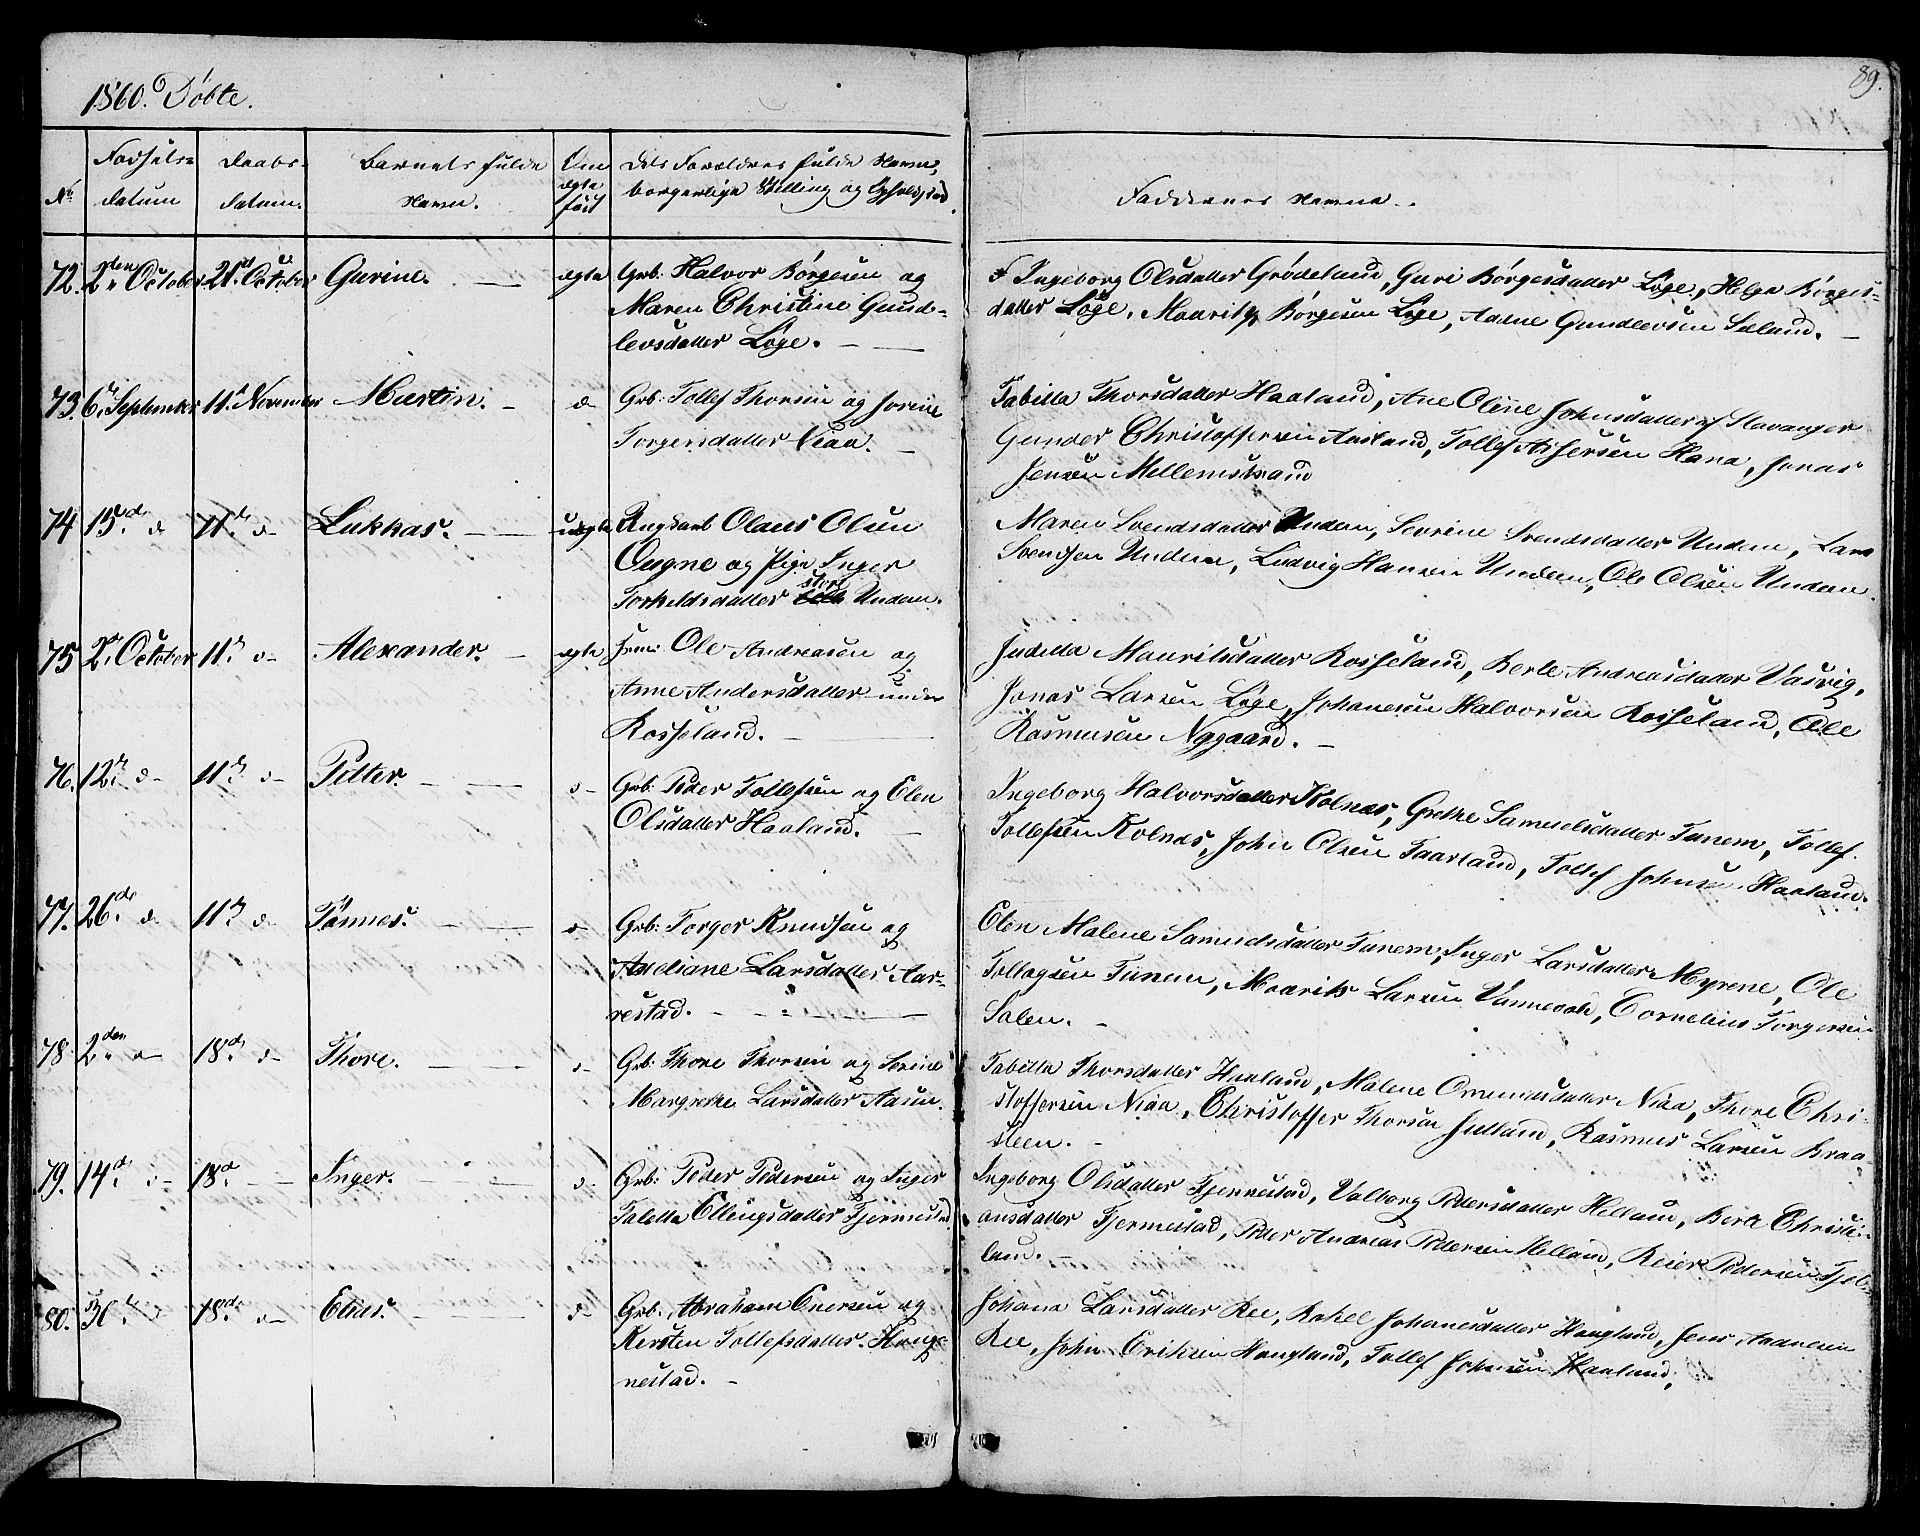 1860. Døbte.
89.
No
Fødsels=
datum
Daabs=
datum.
Barnets fulde
Navn.
Om
ægte
født
Dets Forældres fulde Navne,
borgerlige Stilling og Opholdssted.
Faddernes Navne.
72. 2den October 21d October Gurine. ægte Grb: Halvor Børgesen og
Maren Christine Gund=
levsdatter Løge.
F Ingeborg Olsdatter Grødeland, Guri Børgesdatter Løge, Helga Børges=
datter Løge, Mauritz Børgesen Løge, Aadne Gundlevsen Sæland.
73. 6t September 11t November Martin. d Grb: Tollef Thorsen og Serine
Torgersdatter Niaa.
Tabitta Thorsdatter Haaland, Ane Oline Johnsdatter af Stavanger
Gunder Christoffersen Ausland, Tollef Assersen Hana, Jonas
Jensen Mellemstrand
74 15d d 11t d Lukkas. uægte Ungkarl Olaus Olsen
Ougne og Pige Inger
Torkeldsdatter store Undem.
Maren Svendsdatter Undem, Sevrine Svendsdatter Undem, Lars
Svendsen Undem, Ludvig Hansen Undem, Ole Olsen Undem.
75 2d October 11t d Alexander. ægte Ole Andreasen og
Anne Andersdatter under
Rosseland.
Juditta Mauritsdatter Rosseland, Berte Andreasdatter Vasvig,
Jonas Larsen Løge, Johanesen Halvorsen Rosseland, Ole
Rasmusen Nygaard.
76. 12t d 11t d Pitter. d Grb: Peder Tollefsen og Elen
Olsdatter Haaland.
Ingeborg Halvorsdatter Kolnæs, Grethe Samuelsdatter Tunem, Tollef
Tollefsen Kolnæs, John Olsen Taarland, Tollef Johnsen Haaland.
77. 26d d 11t d Tønnes. d Grb: Torger Knudsen og
Andliane Larsdatter Aar=
restad.
Elen Malene Samuelsdatter Tunem, Inger Larsdatter Myrene, Ole
Tollagsen Tunem, Maurits Larsen Vannevold, Cornelius Torgersen
Salen.
78. 2den d 18d d Thore. d Grb: Thore Thorsen og Serine
Margrethe Larsdatter Aasen.
Tabitta Thorsdatter Haaland, Malene Ommundsdatter Niaa, Thore Chri=
stoffersen Niaa, Christoffer Thorsen Jelland, Rasmus Larsen Braa=
steen.
79. 14d d 18d Inger. d Grb: Peder Pedersen og Inger
Taletta Ellingsdatter Fjermestad.
Ingeborg Olsdatter Fjermestad, Valborg Pedersdatter Helland, Berte Christi=
ansdatter Fjermestad, Peder Andreas Pedersen Helland, Reier Pedersen Tjel=
land.
80. 30t d 18d d Elias. d Grb. Abraham Enersen og
Kirsten Tollefsdatter Høge=
nestad.
Johana Larsdatter Ree, Rakel Johanesdatter Haugland, Jens Aanensen
Ree, John Eriksen Haugland, Tollef Johnsen Haaland,